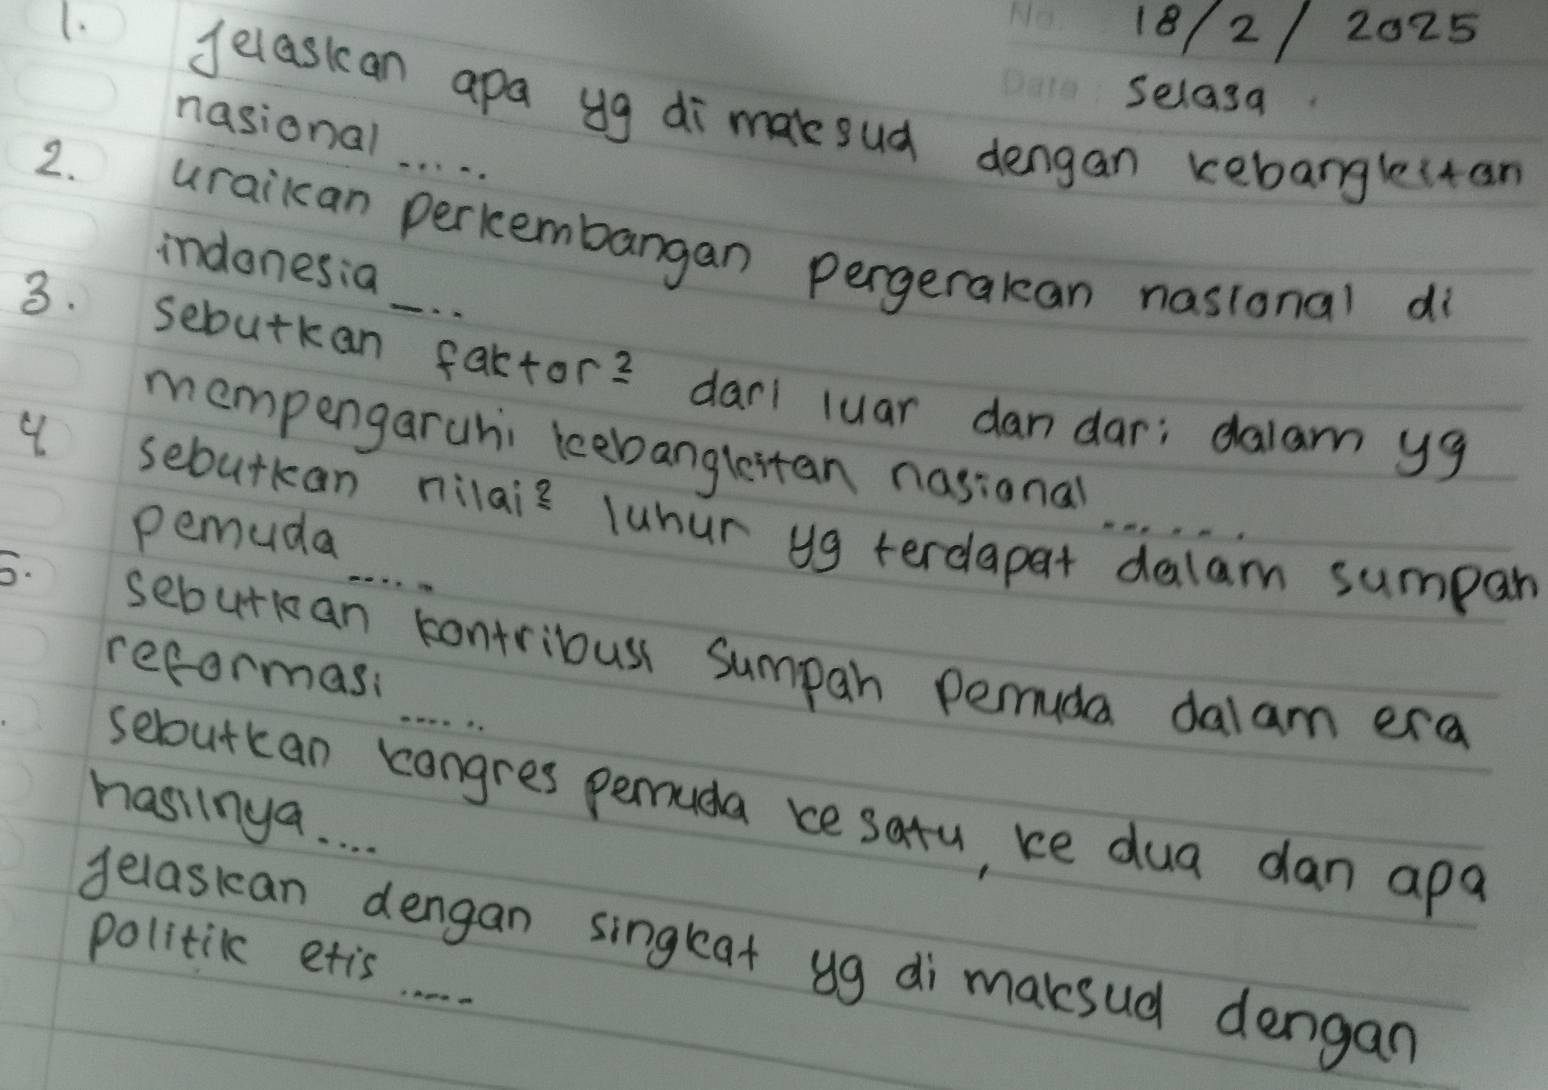 No. 18/2/2025
Date: Selasa.
1. Jelaskan apa yg di maksud dengan kebangkitan
nasional.....
2. uraikan perkembangan pergerakan nasional di
indonesia....
3. sebutkan faktor² dari luar dan dari dalam yg
mempengaruhi kebangkitan nasional......
4 sebutkan nilai² luhur yg terdapat dalam sumpah
pemuda.....
5. sebutkan kontribusi sumpah pemuda dalam era
reformasi......
. sebutkan kongres pemuda ke satu, ke dua dan apa
hasilnya....
Jelaskan dengan singkat yg di maksud dengan
politik etis.....